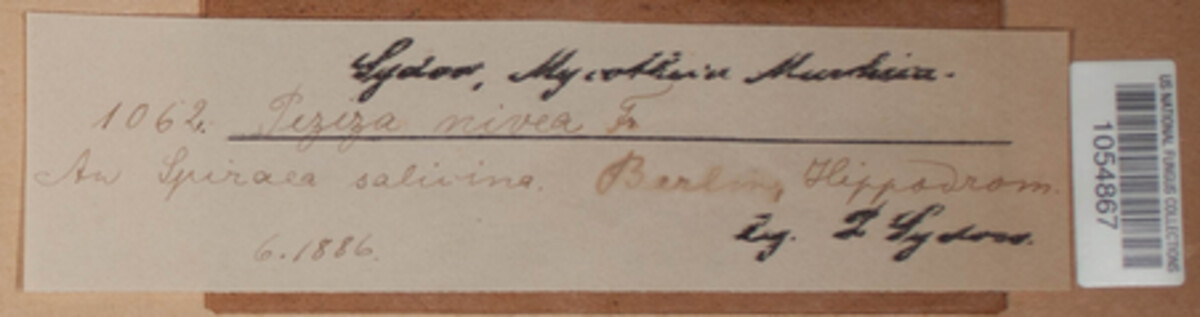 Sydow, Mycotheca Marchica.
1062. Peziza nivea Fr.
An Spiraea salicina. Berlin, Hippodrom.
6.1886.
leg. P Sydow.
US NATIONAL FUNGUS COLLECTIONS
1054867